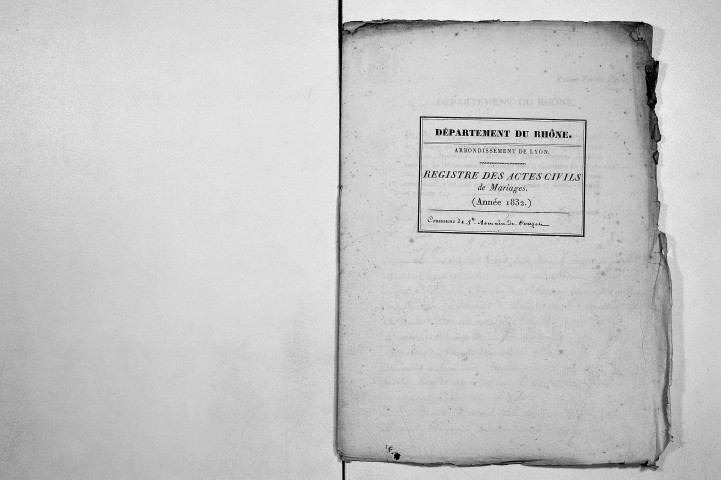 DÉPARTEMENT DU RHÔNE.
DÉPARTEMENT DU RHÔNE.
ARRONDISSEMENT DE LYON.
REGISTRE DES ACTES CIVILS
de Mariages.
(Année 1832.)
Commune de St. Romain de Couzon